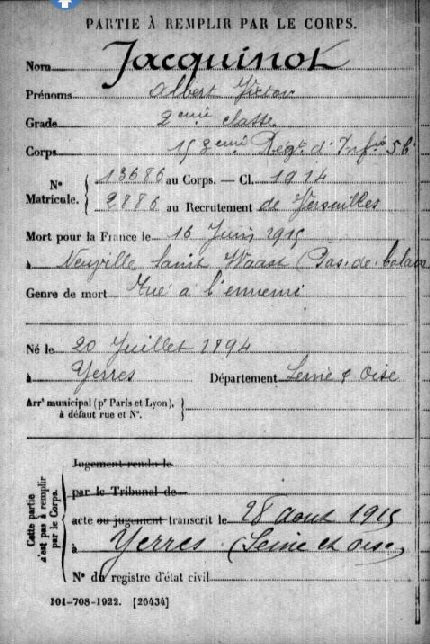 PARTIE À REMPLIR PAR LE CORPS.
Nom Jacquinot
Prénoms Albert Victor
Grade 2ème classe
Corps 158ème Regt d'Infie
N° Matricule. 13686 au Corps. — Cl. 1914
2886 au Recrutement de Versailles
Mort pour la France le 16 Juin 1915
à Neuville Saint Waast (Pas-de-Calais
Genre de mort Tué à l'ennemi
Né le 20 Juillet 1894
à Yerres Département Seine & Oise
Arrt municipal (pr Paris et Lyon),
à défaut rue et N°.
Cette partie n'est pas à remplir par le Corps.
Jugement rendu le
par le Tribunal de
acte ou jugement transcrit le 28 aout 1915
à Yerres (Seine et Oise)
N° du registre d'état civil
101-708-1922. [25434]